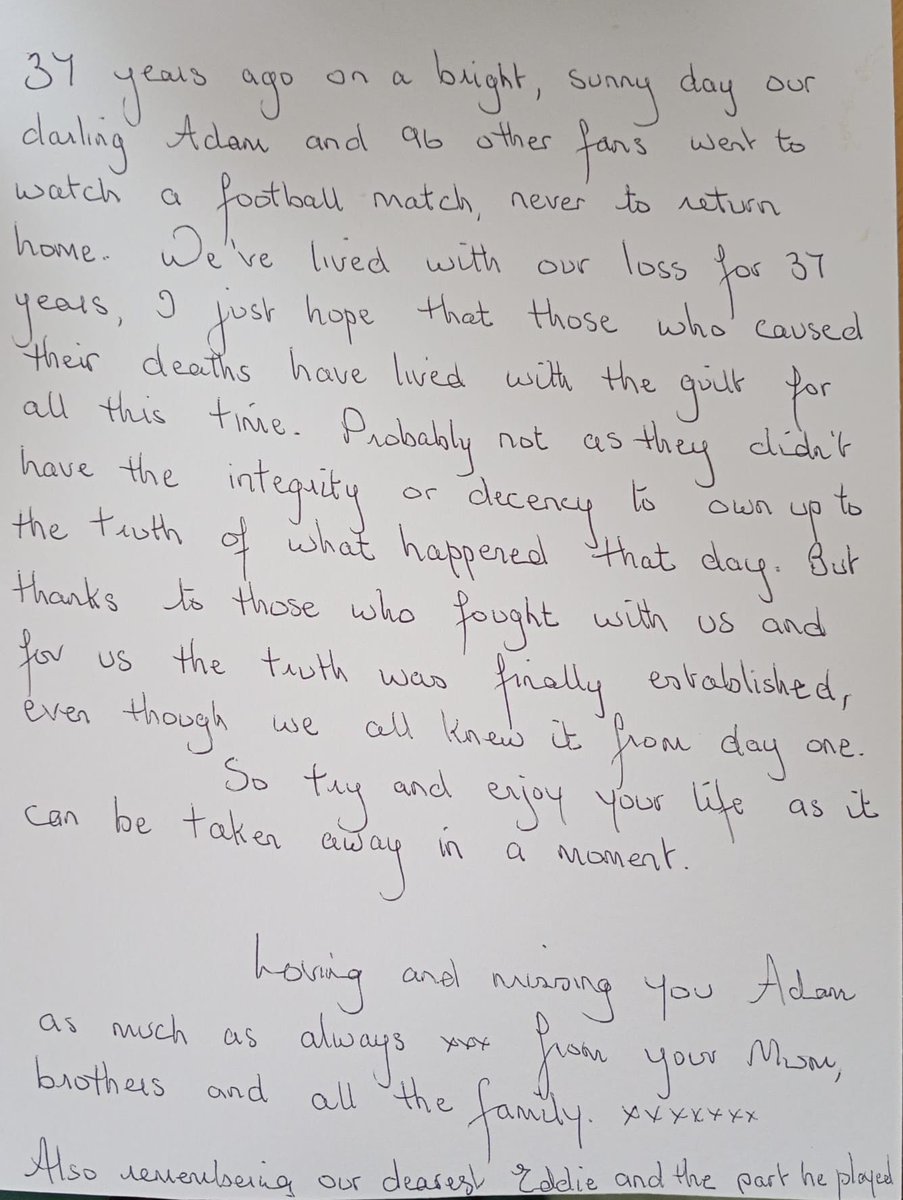 37 years ago on a bright, sunny day our
darling Adam and 96 other fans went to
watch a football match, never to return
home. We've lived with our loss for 37
years, I just hope that those who caused
their deaths have lived with the guilt for
all this time. Probably not as they didn't
have the integrity or decency to own up to
the truth of what happened that day. But
thanks to those who fought with us and
for us the truth was finally established,
even though we all knew it from day one.
So try and enjoy your life as it
can be taken away in a moment.
Loving and missing you Adam
as much as always xxx from your Mum,
brothers and all the family. xxxxxxx
Also remembering our dearest Eddie and the part he played